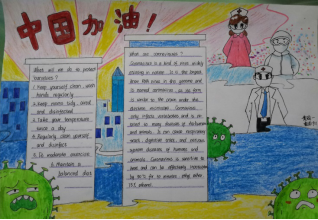 中国加油！
What will we do to protect
ourselves?
1. Keep yourself clean, wash
hands regularly
2. Keep rooms tidy, aired
and disinfected
3. Take your temperature
twice a day
4. Regularly clean yourself
and disinfect
5. Do moderate exercise
6. Maintain a
balanced diet
What are coronaviruses?
Coronavirus is a kind of virus widely
existing in nature. It is the largest
known RNA virus in the genome and
is named coronavirus
is similar to the crown under the
electron microscope. Coronavirus
only infects vertebrates and is
related to many diseases of humans
and animals. It can cause respiratory
tract, digestive tract, and nervous
system diseases of humans and
animals. Coronavirus is sensitive to
heat and can be effectively inactivated
by 56℃ for 30 minutes